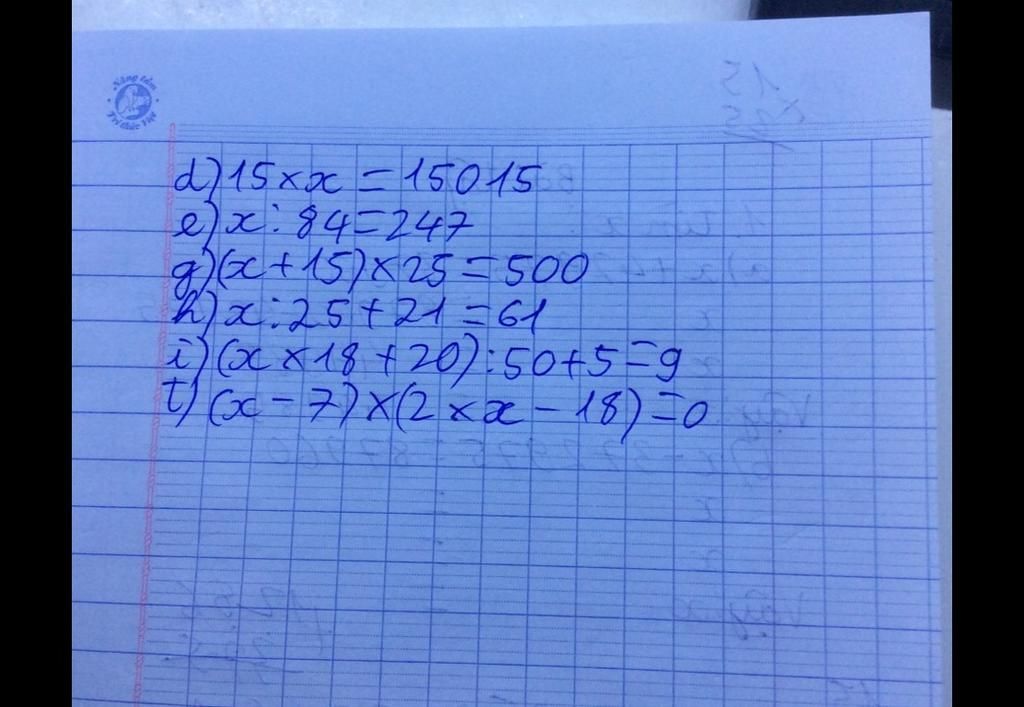 Nâng tầm
Tri thức Việt
d) 15 × x = 15015
e) x : 84 = 247
g) (x + 15) × 25 = 500
h) x : 25 + 21 = 61
i) (x × 18 + 20) : 50 + 5 = 9
t) (x - 7) × (2 × x - 18) = 0